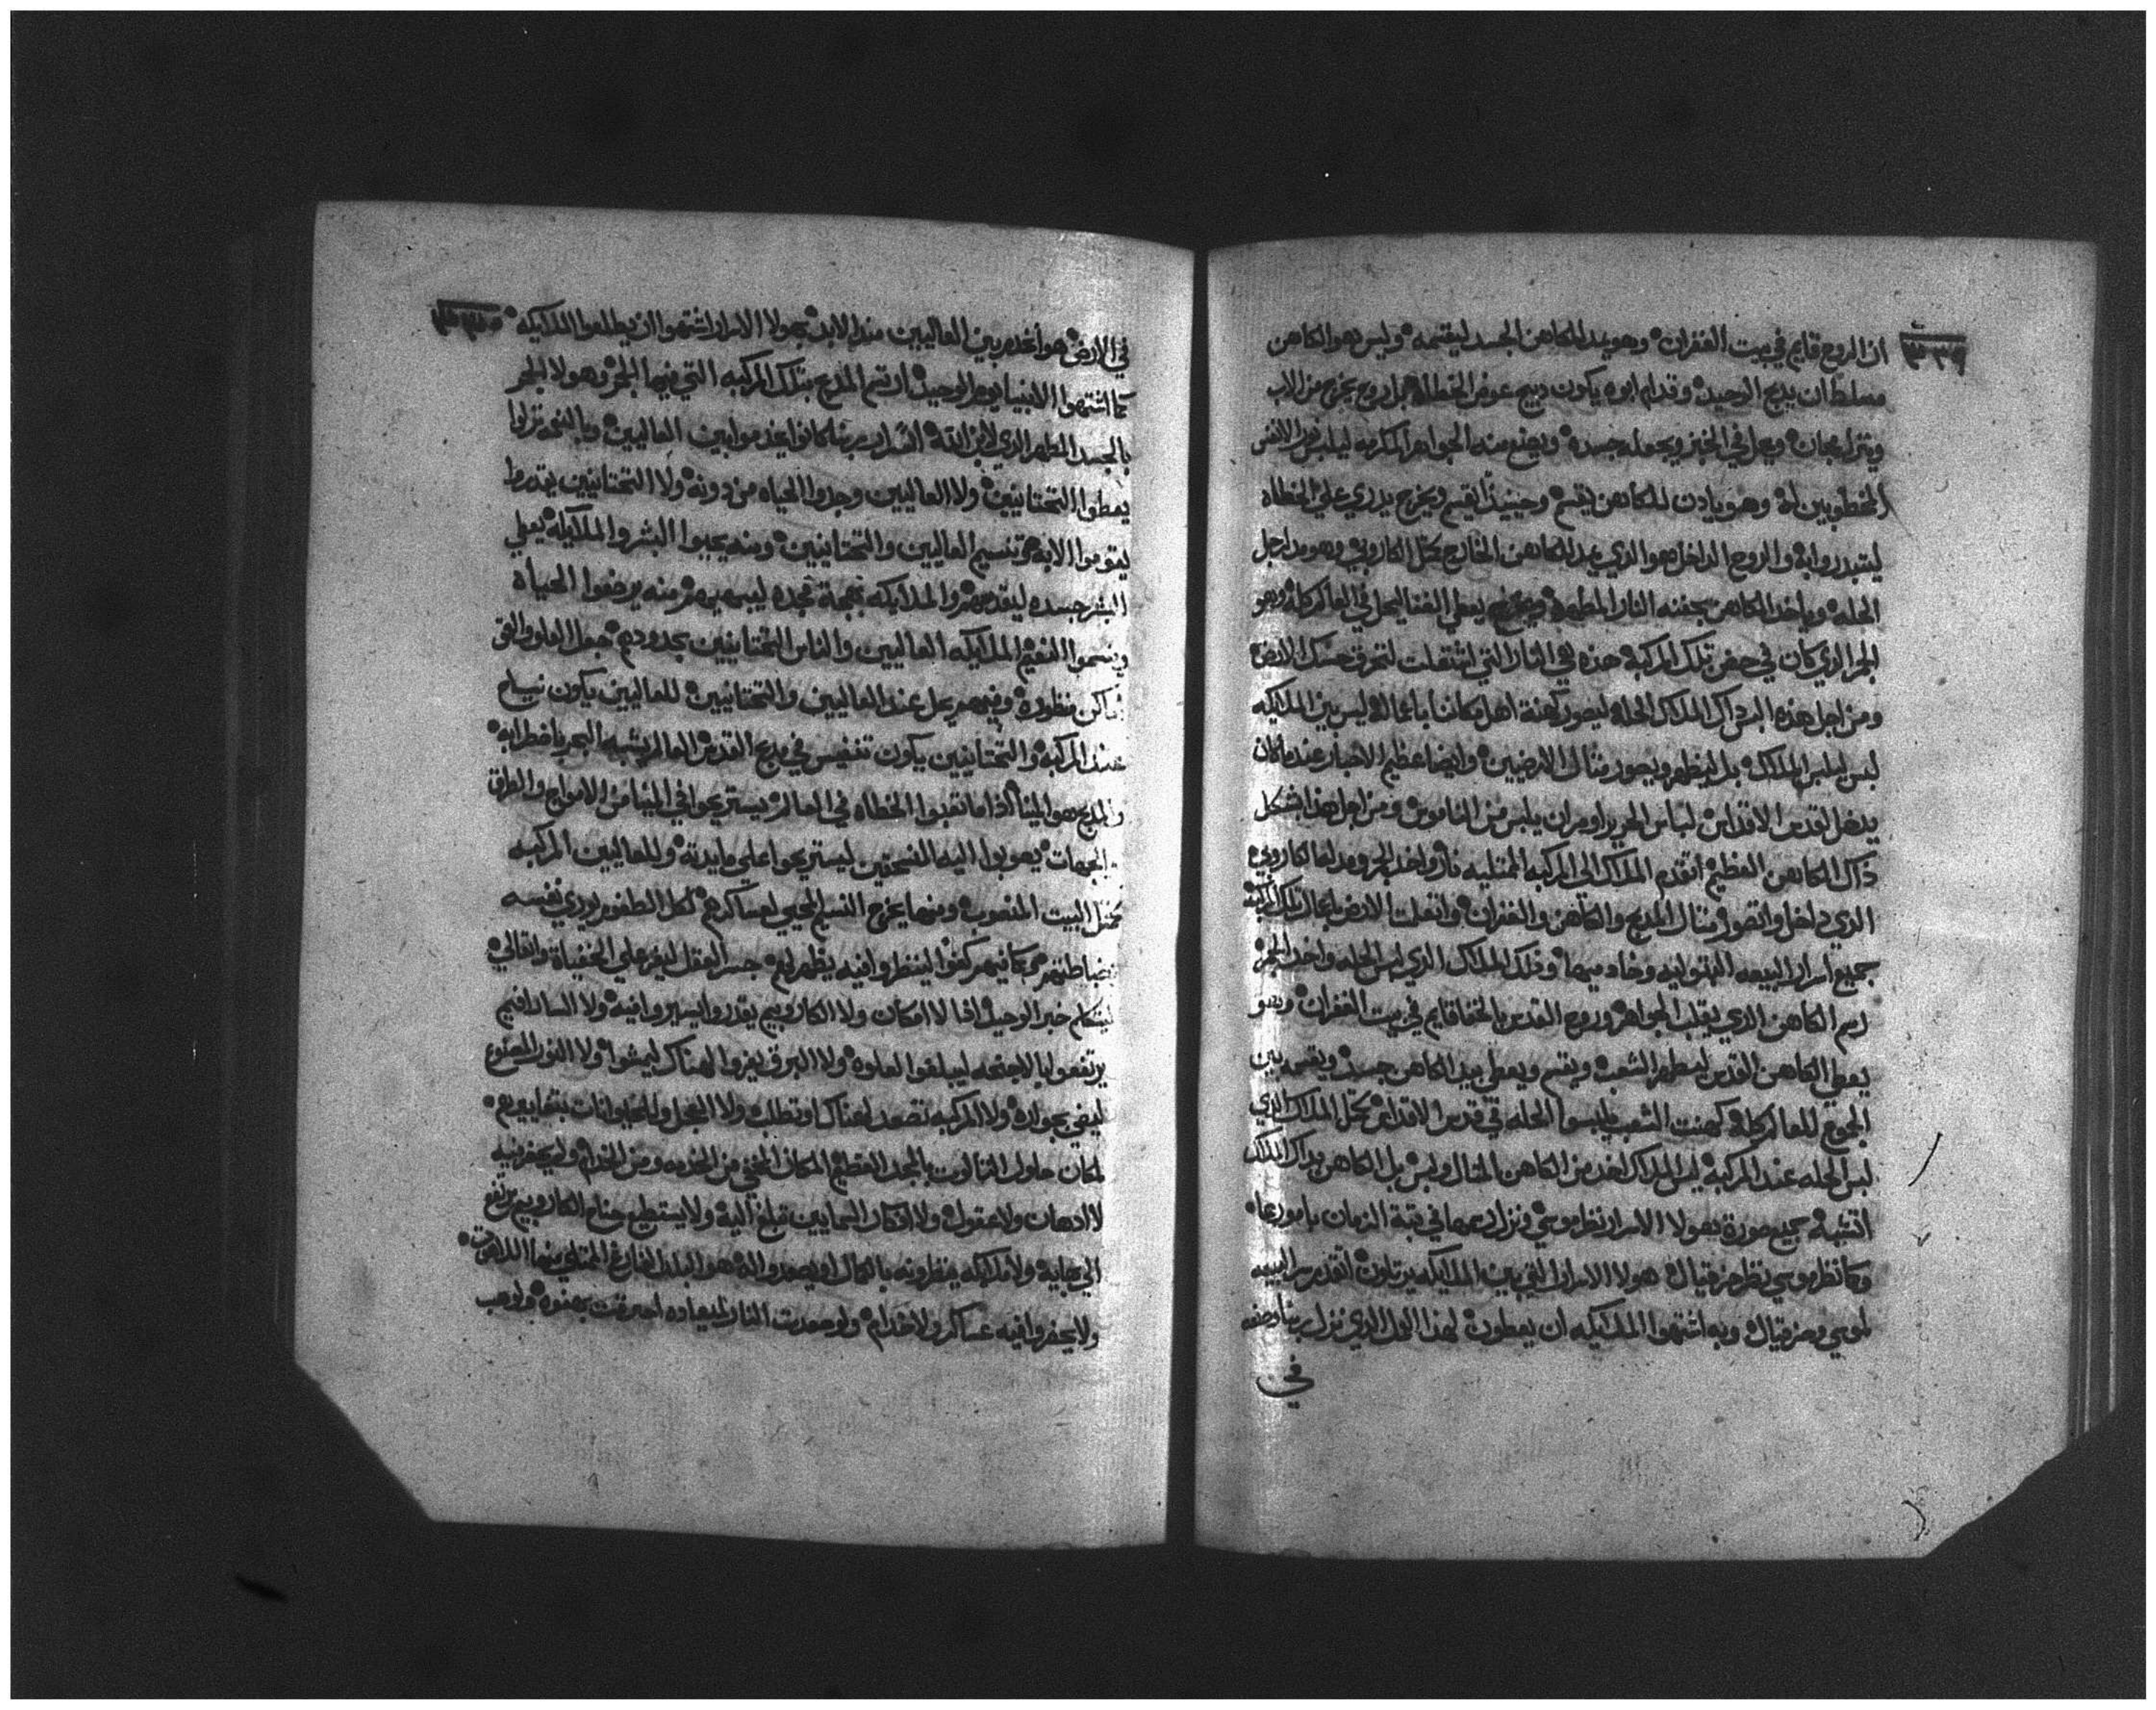 ان الروح قايم في بيت الغفران وهو يمد للكاهن الجسد ليقسمه وليس هو الكاهن
مسلط ان يدبح الوحيد وقدام ابوه يكون دبيح عوض الخطاه بل روح يخرج من الاب
وينزل مجان ويحل في الخبز ويجعله جسده ويصنع منه الجواهر المكرمه ليلبس الانفس
المخطوبين له وهو يادن للكاهن يقسم وحينيذ يقسم ويخرج يدري علي الخطاه
ليتبدروا به والروح الداخل هو الذي يمد للكاهن الخارج بمثل الكاروبي وهو مد لرجل
الحله وياخد الكاهن بحفنه النار المطهره يعطي الغنا ليحل في العالم كله وهو
الجمر الذي كان في حضن تلك المركبه هذه هي النار التي اشتعلت لتحرق حسك الارض
ومن اجل هذه البس داك الملاك الحله ليصور كهنة اهل مكاننا باعماله ليس بين الملايكه
لبس ليلبس الملاك بل ليظهر ويصور مثال الارضيين وايضا عظيم الاحبار عندما كان
يدخل لقدس الاقداس لباس الحرير اومر ان يلبس من الناموس ومن اجل هذا بشكل
داك الكاهن العظيم اتقدم الملاك الي المركبه الممتليه نار واخد الجمر ومد لها الكاروبي
الذي داخل واتصور مثال المدبح والكاهن والغفران وانفلت الارض باعمال تلك المركبه
جميع اسرار البيعه البتوليه وخادميها وذلك الملاك الذي لبس الحله واخد الجمر
رسم الكاهن الذي يقلب الجواهر وروح القدس بالخفا قايم في بيت الغفران وهو
يعطي الكاهن القدس ليطهر الشعب ويقسم ويعطي بيد الكاهن جسده ويقسمه بين
الجموع للعالم كله كهنت الشعب يلبسوا الحله في قدس الاقداس بمثل الملاك الذي
لبس الحله عند المركبه ليس الملاك اخد من الكاهن المثال ولبس بل الكاهن بداك الملاك
اتشبه جميع صورة هولا الاسرار نظر موسي ونزل رسمها في بقة الزمان بامورها
وكما نظر موسي نظر حزقيال هولا الاسرار التي بين الملايكه يرتلون اتقدم سر البيعه
لموسي وحزقيال وبه اشتهوا الملايكه ان يعطون لهذا الحمل الذي نزل ربنا وضعه
في
في الارض هو اخدم بين العاليين منذ الابد بهولا الاسرار اشتهوا ان يطلعوا الملايكه
كما اشتهوا الانبيا يوم الوحيد ارتسم المدبح بتلك المركبه التي فيها الجمر وهولا الجمر
بالجسد المطهر الذي لابن الله اسرار ربنا كانوا يخدموا بين العاليين وبالنعمه نزلوا
يعطوا التحتانيين ولا العاليين وجدوا الحياه من دونه ولا التحتانيين يقدروا
يقوموا الا به هو تنسيم العاليين والتحتانيين ومنه يحيوا البشر والملايكه يعطي
البشر جسده ليقدسهم والملايكه بهجة مجده ليبهيهم منه يرضعوا الحياه
ويسموا المنعم الملايكه العاليين والناس التحتانيين بحدودهم جعل العلو والعمق
منظوره وفيهم حل عند العاليين والتحتانيين للعاليين يكون نياح
عند المركبه والتحتانيين يكون تنفيس في مدبح القدس العالم يشبه البحر باضطرابه
والمدبح هو المينا اذا ما تعبوا الخطاه في العالم يستريحوا في المينا من الامواج والغرق
يهربوا اليه الضيحقين ليستريحوا علي مايدته وللعاليين المركبه
بمثل البيت المنصوب ومنها يخرج النسيم المحيي لعساكرهم لكل الطغوس يدري نفسه
وكافيهم كفوا لينظروا فيه يظهر لهم جسر العقل ليعبر علي الخفياة واتعالي
ليتكلم خبر الوحيد لا امكان ولا الكاروبيم يقدروا يسيروا فيه ولا السارافيم
يرتفعوا بالاجنحه ليبلغوا لعلوه ولا البرق يفروا لهناك ليمشوا ولا النور المصنوع
ليضي بجواره ولا المركبه تصعد لهناك اوتطلب ولا العجل ولا الحيوانات بتحاييرهم
لمكان حلول الثالوت بالمجد العظيم المكان المخفي من الخدمه ومن الخدام ولم يحضر فيه
لا ادهان ولا عقول ولا افكار السمايين تبلغ اليه ولا يستطيع جناح الكاروبيم يرتفع
الي جنابه ولا ملايكه ينظرونه باعمال او يصعدوا له هو البلد الفارغ الممتلي منها اللاهوت
ولا يحضروا فيه عساكر ولا خدام ولو صعدت النار لميعاده احترقت بضوه ولو هب